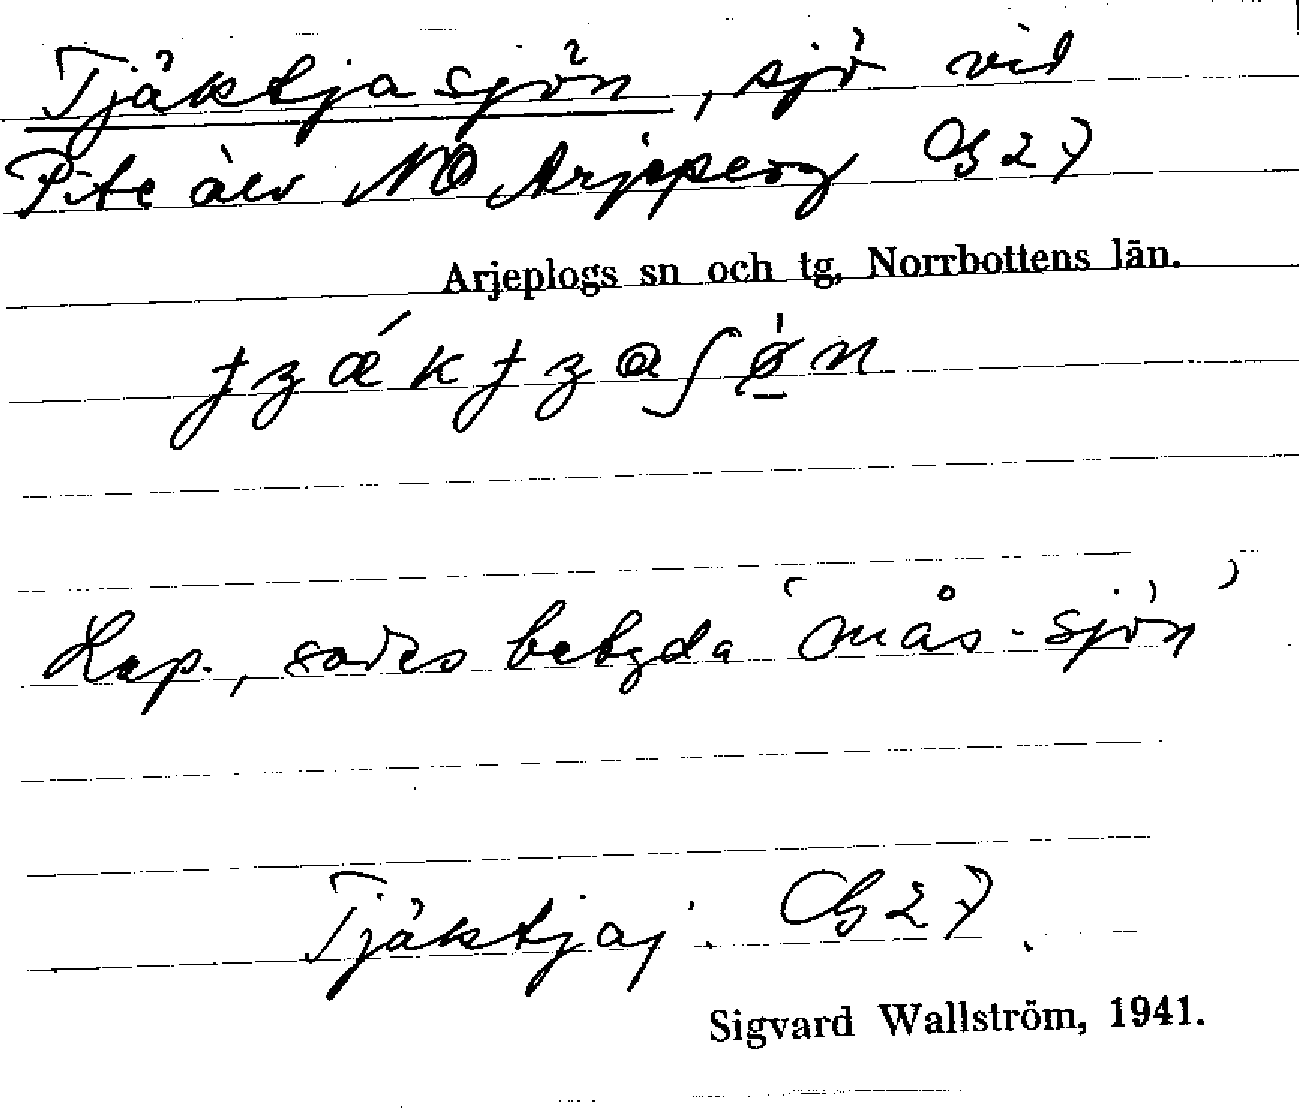 Tjäktjasjön, sjö vid
Pite älv NO Arjeplog G 27
Arjeplogs sn och tg, Norrbottens län.
Lap., sades betyda 'mås-sjön'
Tjäktjaj. G 27.
Sigvard Wallström, 1941.